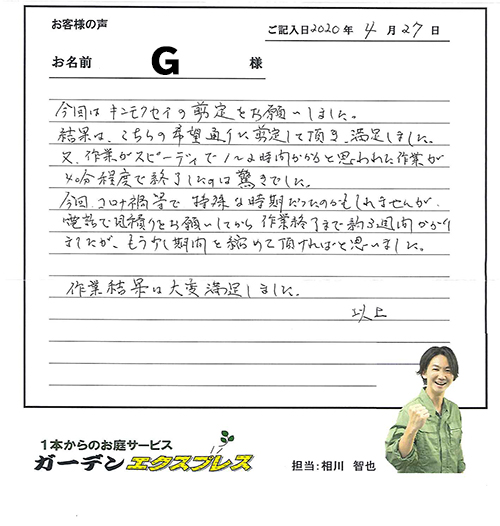 お客様の声
ご記入日2020年 4月27日
お名前 G 様
今回はキンモクセイの剪定をお願いしました。
結果は、こちらの希望通りに剪定して頂き、満足しました。
又、作業がスピーディで1~2時間かかると思われた作業が
40分程度で終了したのは驚きでした。
今回、コロナ禍等で特殊な時期だったのかもしれませんが、
電話で見積りをお願いしてから作業終了まで約3週間かかり
ましたが、もう少し期間を縮めて頂ければと思いました。
作業結果は大変満足しました。
以上
1本からのお庭サービス
ガーデンエクスプレス
担当:相川 智也